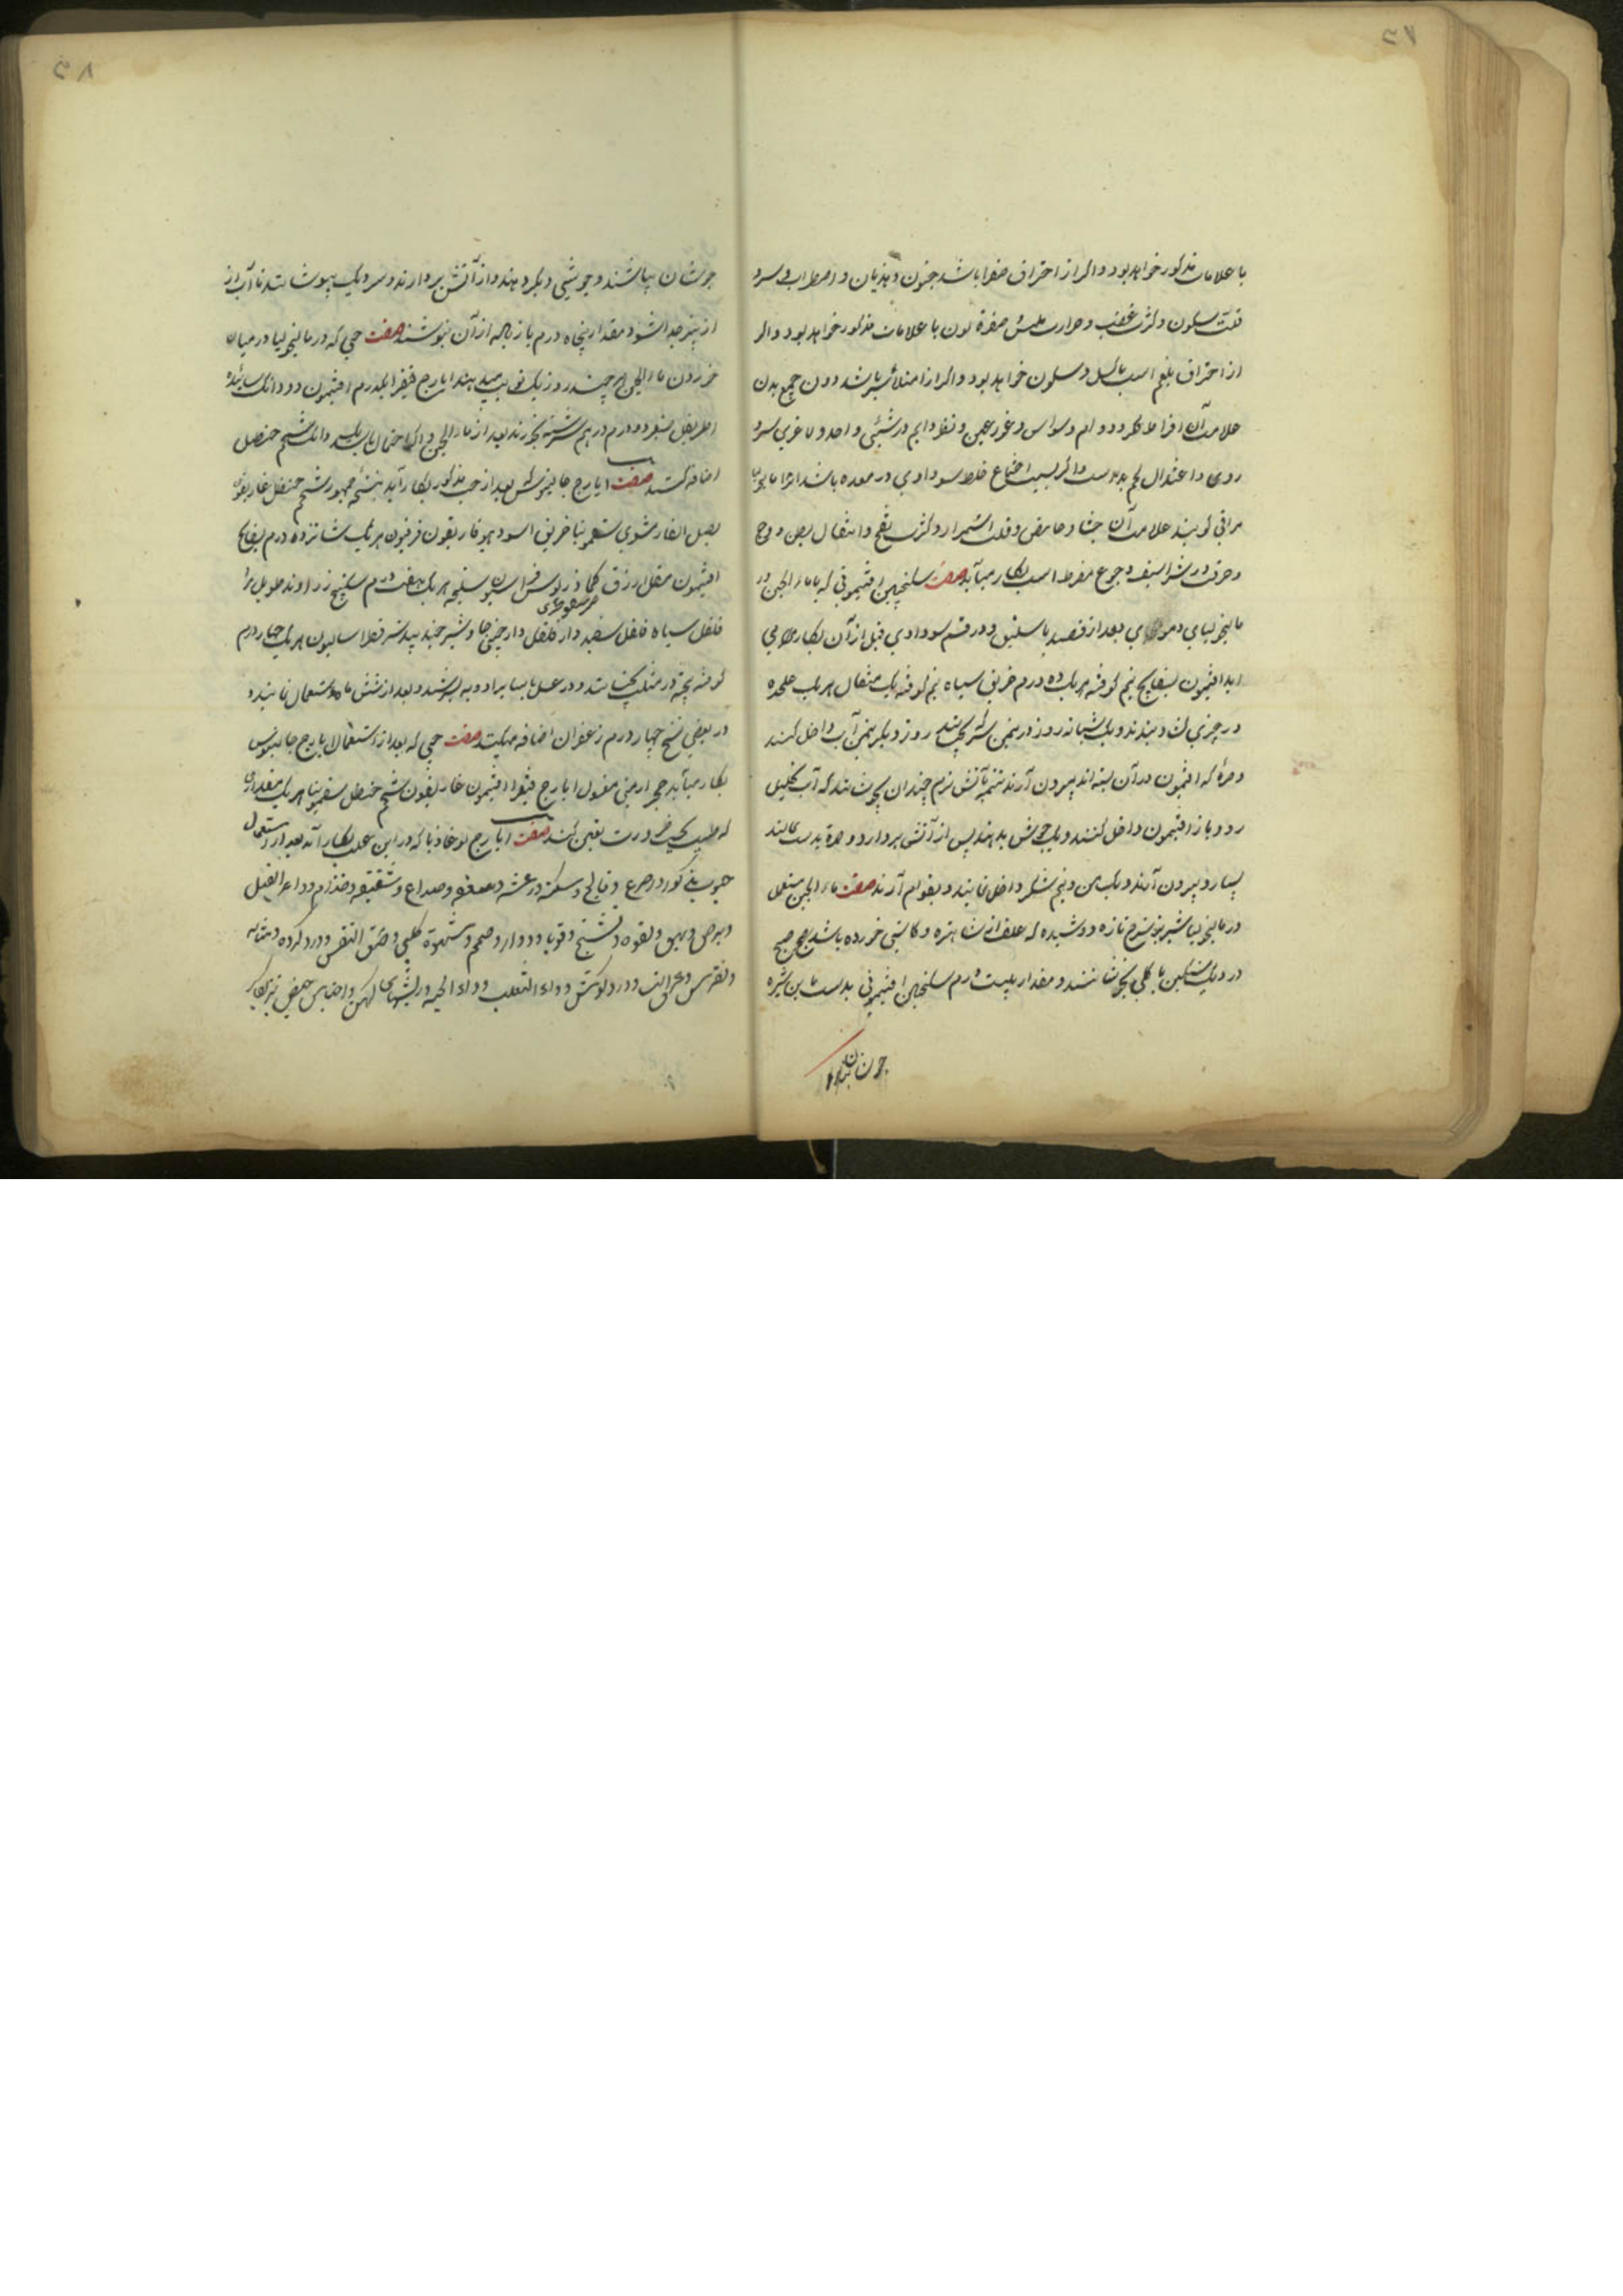 ۵۷
با علامات مذکور خواهد بود و اگر از احتراق صفرا باشد جنون و هذیان و اضطراب و سهر و
قلت سکون و کثرت غضب و حرارت ملمس و صفرة لون با علامات مذکور خواهد بود و اگر
از احتراق بلغم است با کسل و سکون خواهد بود و اگر از امتلای سر باشد دون جمیع بدن
علامت آن افراط فکر و دوام وسواس و غور عین و نظر دایم در شیئی واحد و لاغری سر و
روی و اعتدال لحم بدن است و اگر بسبب اجتماع خلط سوداوی در معده باشد انرا مالیخولیا
مراقی گویند علامت آن جشاء حامض و قلت استمرا و کثرت نفخ و انتفاخ بطن و وجع
و حرقت در شراسیف و جوع مفرط است بکار میآید صفت سکنجبین افتیمونی که با ماء الجبن در
مالیخولیای دموی بعد از فصد باسلیق و در قسم سوداوی قبل از آن بکار می
آید افتیمون بسفایج نیم کوفته هر یک ده درم خربق سیاه نیم کوفته یک مثقال هر یک علیحده
در چیزی کنند و یک شبانه روز در نیم من سرکه بخیسانند روز دیگر نیمن آب داخل کنند
و صرهٔ که افتیمون در آن بسته اند بیرون آرند تتمه بآتش نرم چندان بجوشانند که آب تحلیل
رود باز افتیمون داخل کنند و یک جوش بدهند پس از آتش بردارد و صره بدست بمالند
بسیار و بیرون آرند و یک من و نیم شکر داخل نمایند و بقوام آرند صفت ماء الجبن مستعمل
در مالیخولیا شیر بز سرخ تازه دوشیده که علف آن شاهتره و کاسنی خورده باشد صبح
در دیک سنگین یا گلی بجوشانند و مقدار بیست درم سکنجبین افتیمونی بدست با بن شیره
جوشان
۵۸
جوشان بپاشند و جوشی دیگر دهند و از آتش بردارند و سر دیک بپوشانند تا آب از
از پنیر جدا شود مقدار پنجاه درم یا زیاده از آن بنوشند صفت حبی که در مالیخولیا در میان
خوردن ماء الجبن هر چند روز یک نوبت میدهند ایارج فیقرا یکدرم افتیمون دو دانک سائیده
اطریفل صغیر دو درم در هم سرشته بخورند بعد از ماء الجبن و اگر احتمال باشد یک دانک شحم حنظل
اضافه کنند صفت ایارج جالینوس بعد از حب مذکور بکار آید نسخهٔ جمهور شحم حنظل غاریقون
بصل الفار مشوی سقمونیا خربق اسود هیوفاریقون فرفیون هر یک شانزده درم بسفایج
افتیمون مقل ازرق کماذریوس فراسیون سلیخه هر یک هفت درم سکبینج زراوند طویل مر
فلفل سیاه فلفل سفید دارفلفل دارچینی جاوشیر جندبیدستر فطراسالیون هر یک چهار درم
کوفته پخته در مثلث بخیسانند و در عسل با سایر ادویه بسرشند و بعد از شش ماه استعمال نمایند و
در بعضی نسخ چهار درم زعفران اضافه میکنند صفت حبی که بعد از استعمال ایارج جالینوس
بکار میآید حجر ارمنی مغسول ایارج فیقرا افتیمون غاریقون شحم حنظل سقمونیا هر یک مقداری
که طبیب بحسب ضرورت تعین کند صفت ایارج لوغاذیا که در این علت بکار آید بعد از استعمال
حبوب مذکور در صرع و فالج و سکته و رعشه و صداع و شقیقه و جذام و داء الفیل
و برص و بهق و لقوه و تشنج و قوبا و دوار و صمم و شهوة کلبی و ضیق النفس و درد گرده و مثانه
و نقرس و عرق النسا و درد گوش و داء الثعلب و داء الحیه و ریشهای کهن و احتباس حیض نیز بکار